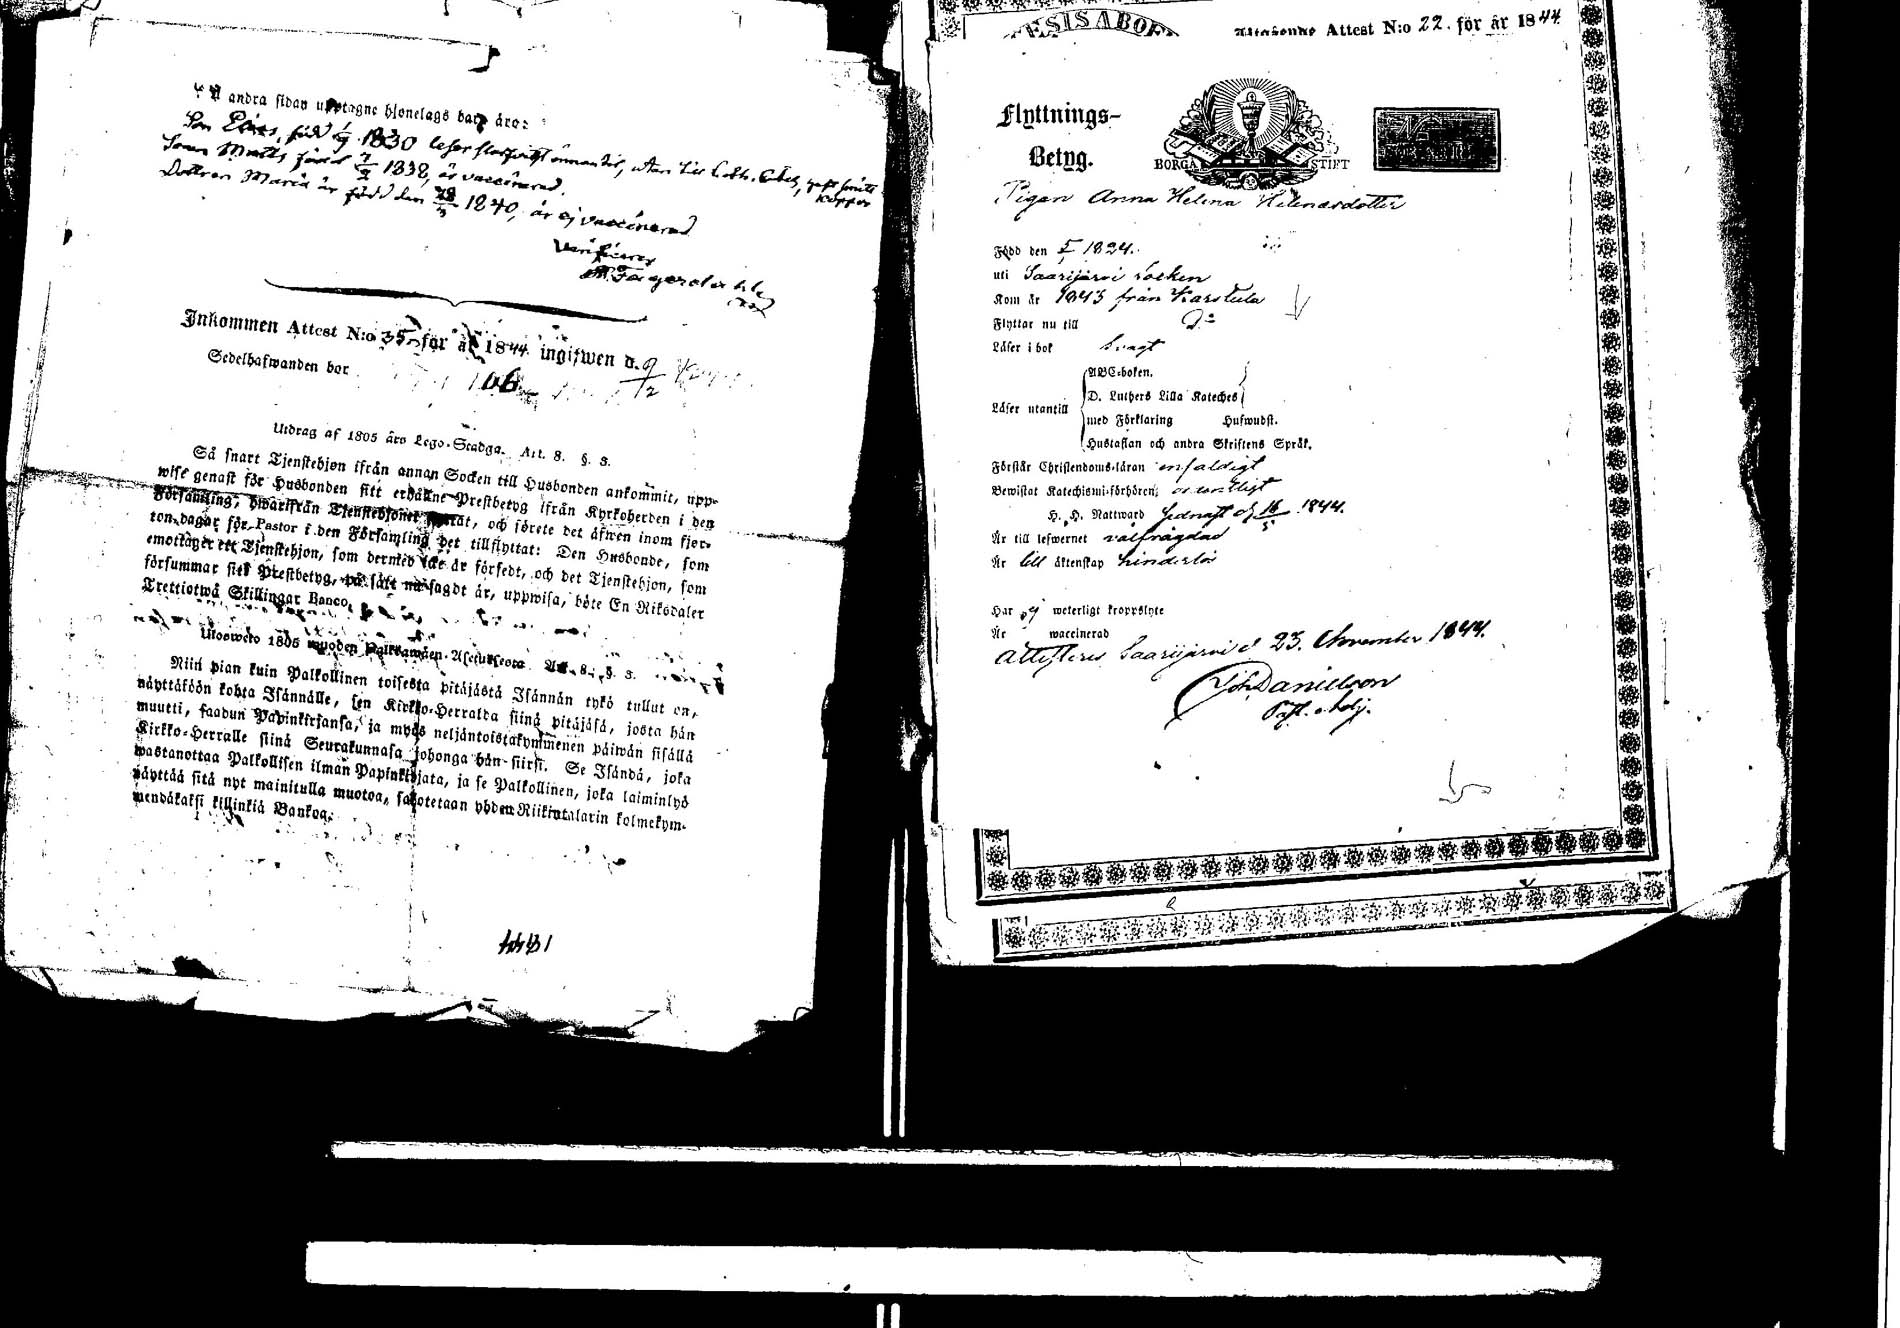 andra sidan upptagne hjonelags barn äro:
Son Elias, född 1830
Sonen Matts född 1838, är vaccinerad.
Dottren Maria är född den 28/3 1840, är ej vaccinerad
Verificerar
Inkommen Attest N:o 35 för år 1844 ingifwen d. 9/12
Sedelhafwanden bor
166
Utdrag af 1805 års Lego-Stadga. Art. 8. §. 3.
Så snart Tjenstehjon ifrån annan Socken till Husbonden ankommit, upp-
wise genast för Husbonden sitt erhållne Prestbetyg ifrån Kyrkoherden i den
Församling, hwarifrån Tjenstehjonet flyttat, och förete det äfwen inom fjor-
ton dagar för Pastor i den Församling det tillflyttat: Den Husbonde, som
emottager ett Tjenstehjon, som dermed icke är försedt, och det Tjenstehjon, som
försummar sitt Prestbetyg, på sätt nu sagdt är, uppwisa, böte En Riksdaler
Trettiotwå Skillingar Banco.
Ulosweto 1805 wuoden Palkkawäen-Asetuksesta Art. 8. §. 3.
Niin pian kuin Palkollinen toisesta pitäjästä Isännän tykö tullut on,
näyttäköön kohta Isännälle, sen Kirkko-Herralda siinä pitäjäsä, josta hän
muutti, saadun Papinkirjansa, ja myös neljäntoistakymmenen päiwän sisällä
Kirkko-Herralle siinä Seurakunnasa johonga hän siirsi. Se Isändä, joka
wastanottaa Palkollisen ilman Papinkirjata, ja se Palkollinen, joka laiminlyö
näyttää sitä nyt mainitulla muotoa, sakotetaan yhden Riikintalarin kolmekym-
mendäkaksi killinkiä Bankoa.
Utgående Attest N:o 22. för år 1844
Flyttnings-
Betyg.
BORGÅ STIFT
Pigan Anna Helena Helenasdotter
Född den 1824.
uti Saarijärvi socken
Kom år 1843 från Karstula
Flyttar nu till Do
Läser i bok svagt
ABC-boken.
D. Luthers Lilla Kateches
Läser utantill
med Förklaring Hufwudst.
Hustaflan och andra Skriftens Språk.
Förstår Christendoms-läran enfaldigt
Bewistat Katechismi-förhören, ordentligt
H. H. Nattward sednast d 16/5 1844.
Är till lefwernet välfrägdad
Är till äktenskap hinderlös
Har ej weterligt kroppslyte
Är waccinerad
Attesteras Saarijärvi d 23. November 1844.
Joh Danielson
Past. Adj.